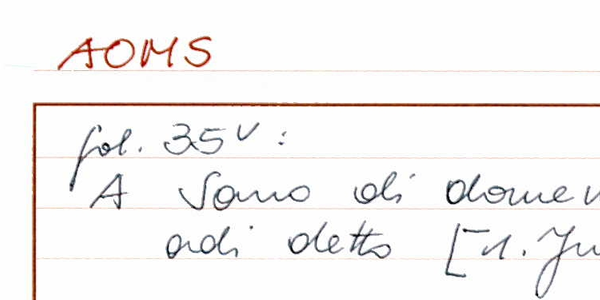 AOMS
fol. 35v:
A Sano di domen
adi detto [1. Ju